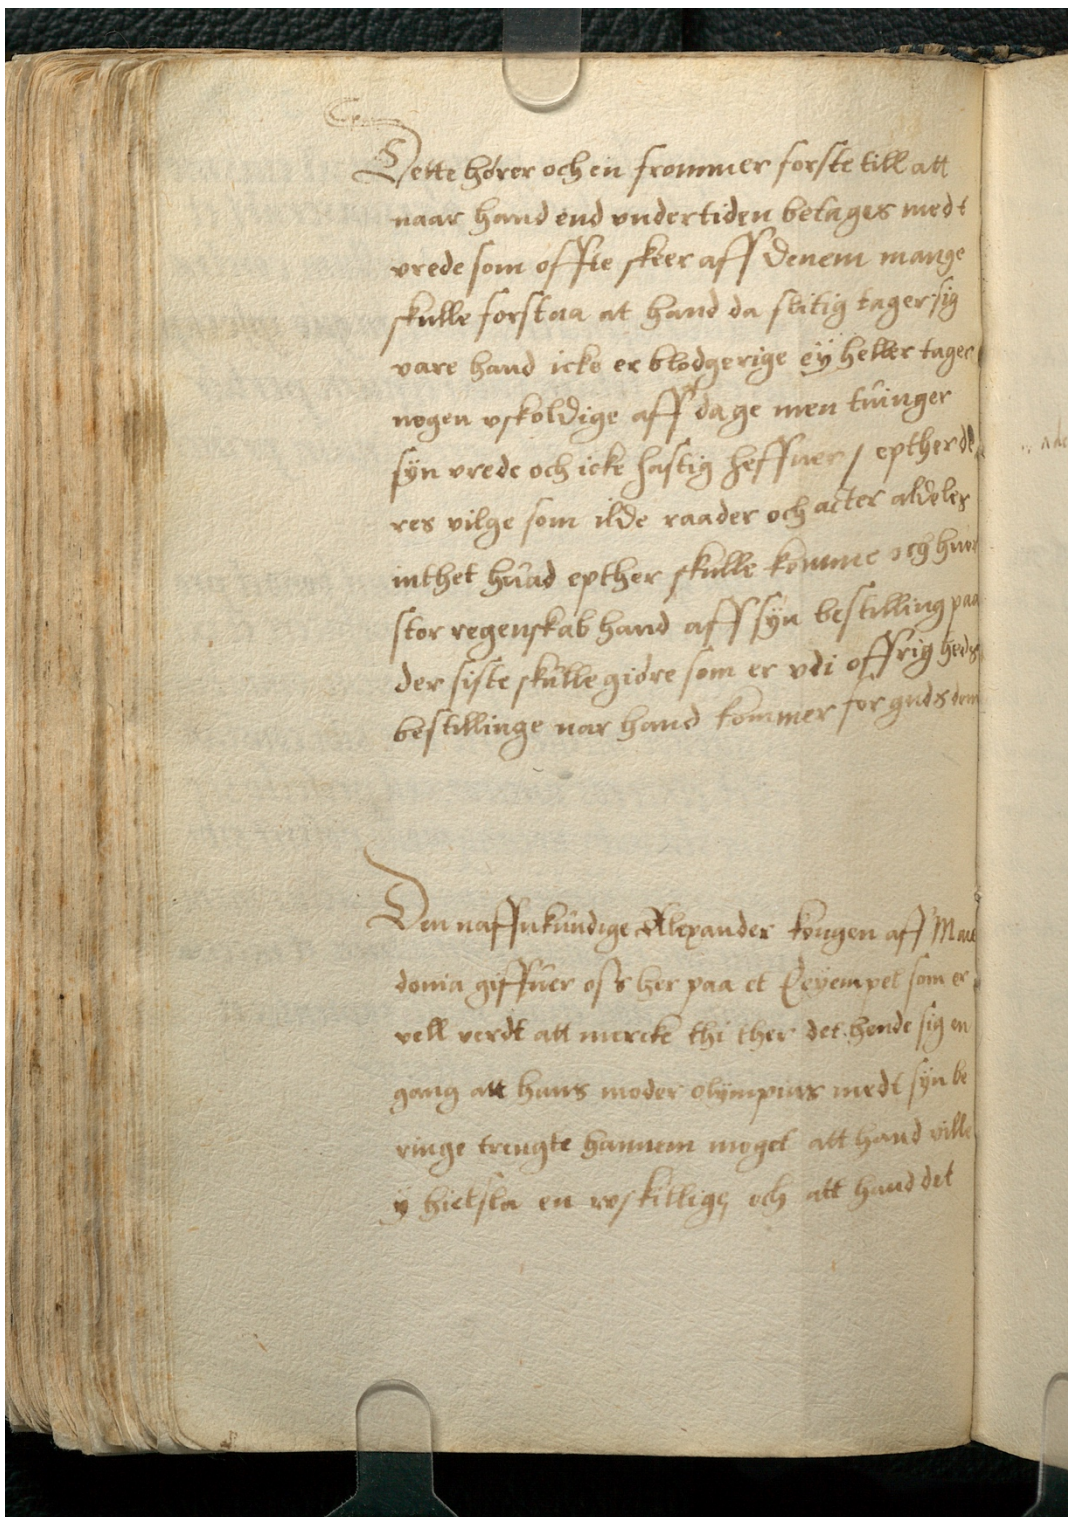 Dette hører och en frommer forste till att
naar hand end vndertiden betages medt
vrede som offte skeer aff denem mange
skulle forstaa at hand da flitig tager sig
vare hand icke er blodgerige eÿ heller tager
nogen vskoldige aff dage men tuinger
sÿn vrede och icke hastig heffuer / epther de
res vilge som ilde raader och acter aldeles
inthet huad epther skulle komme och huor
stor regenskab hand aff sÿn bestilling paa
der siste skulle giøre som er vdi offrigheds
bestillinge nar hand kommer for guds dom
Den naffnkundige Alexander kongen aff Mace
donia giffuer oss her paa et Exempel som er
vell verdt att mercke thi ther det hende sig en
gang att hans moder olÿmpias medt sÿn be
ringe trengte hannem meget att hand ville
ÿ hielsla en wskillige och att hand det